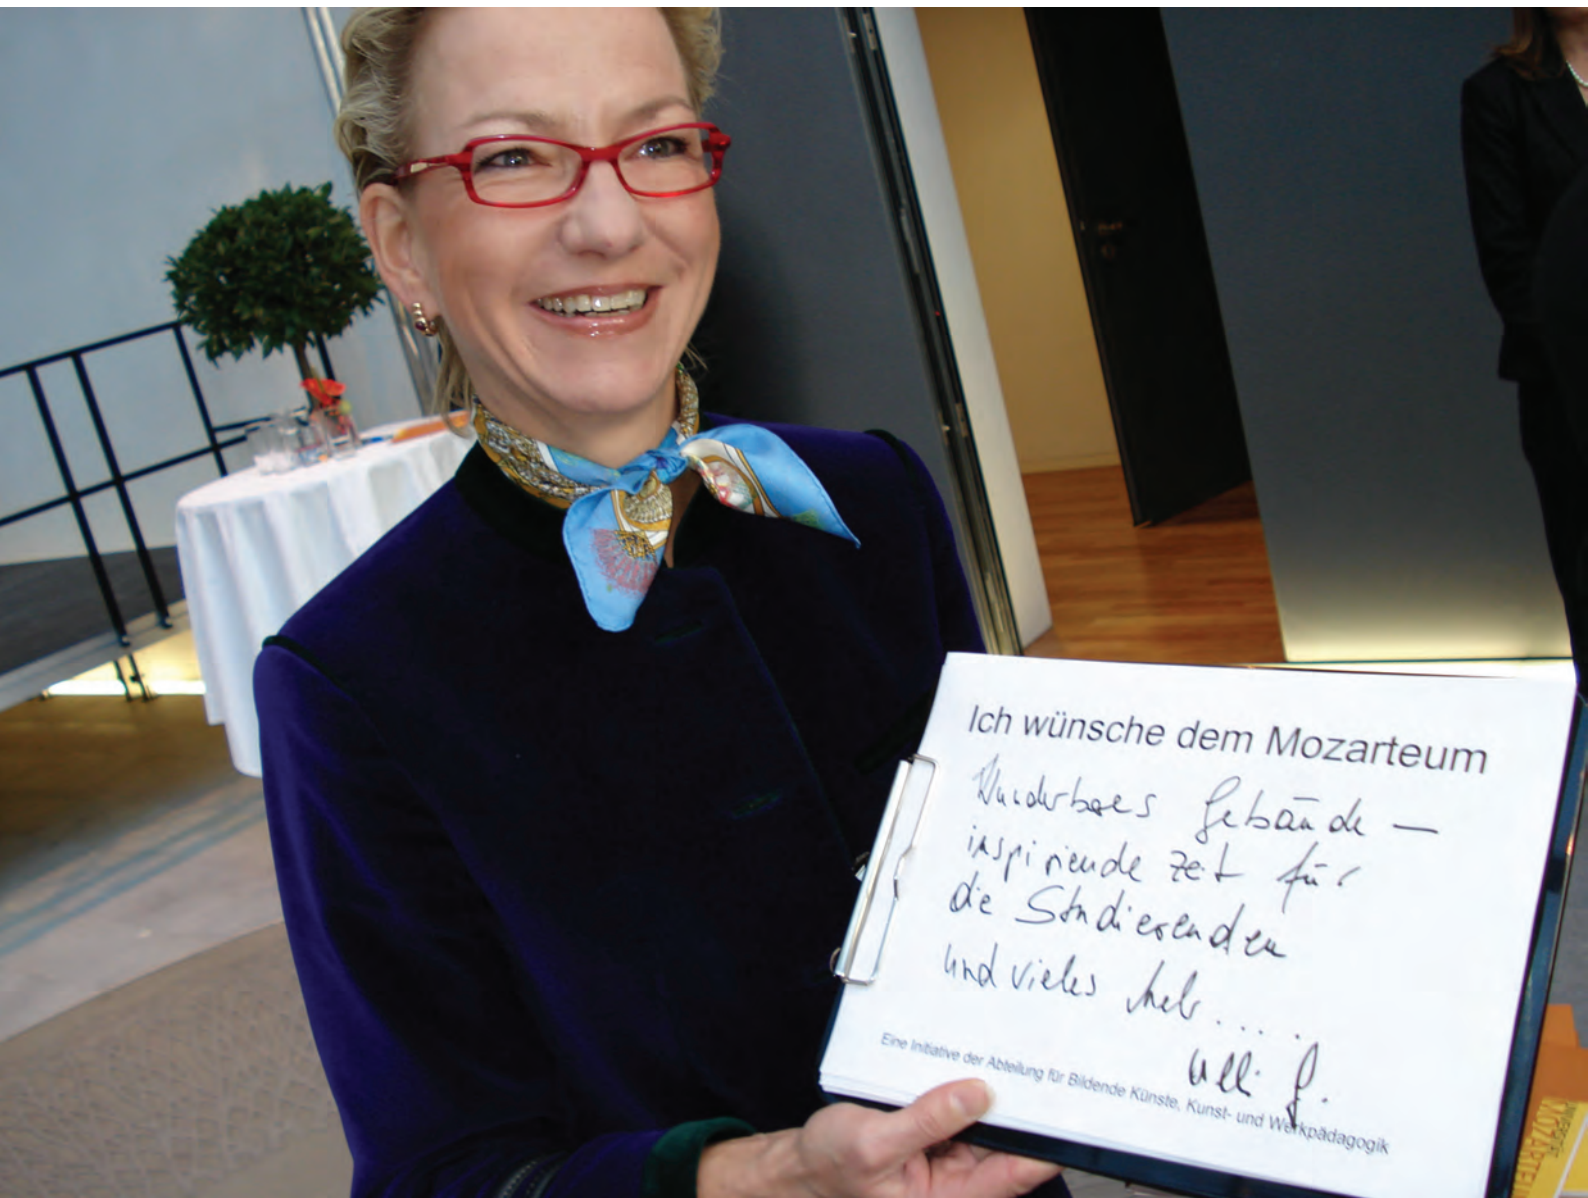 Ich wünsche dem Mozarteum
Wunderbares Gebäude —
inspirierende Zeit für
die Studierenden
und vieles Mehr ....
Ulli G.
Eine Initiative der Abteilung für Bildende Künste, Kunst- und Werkpädagogik